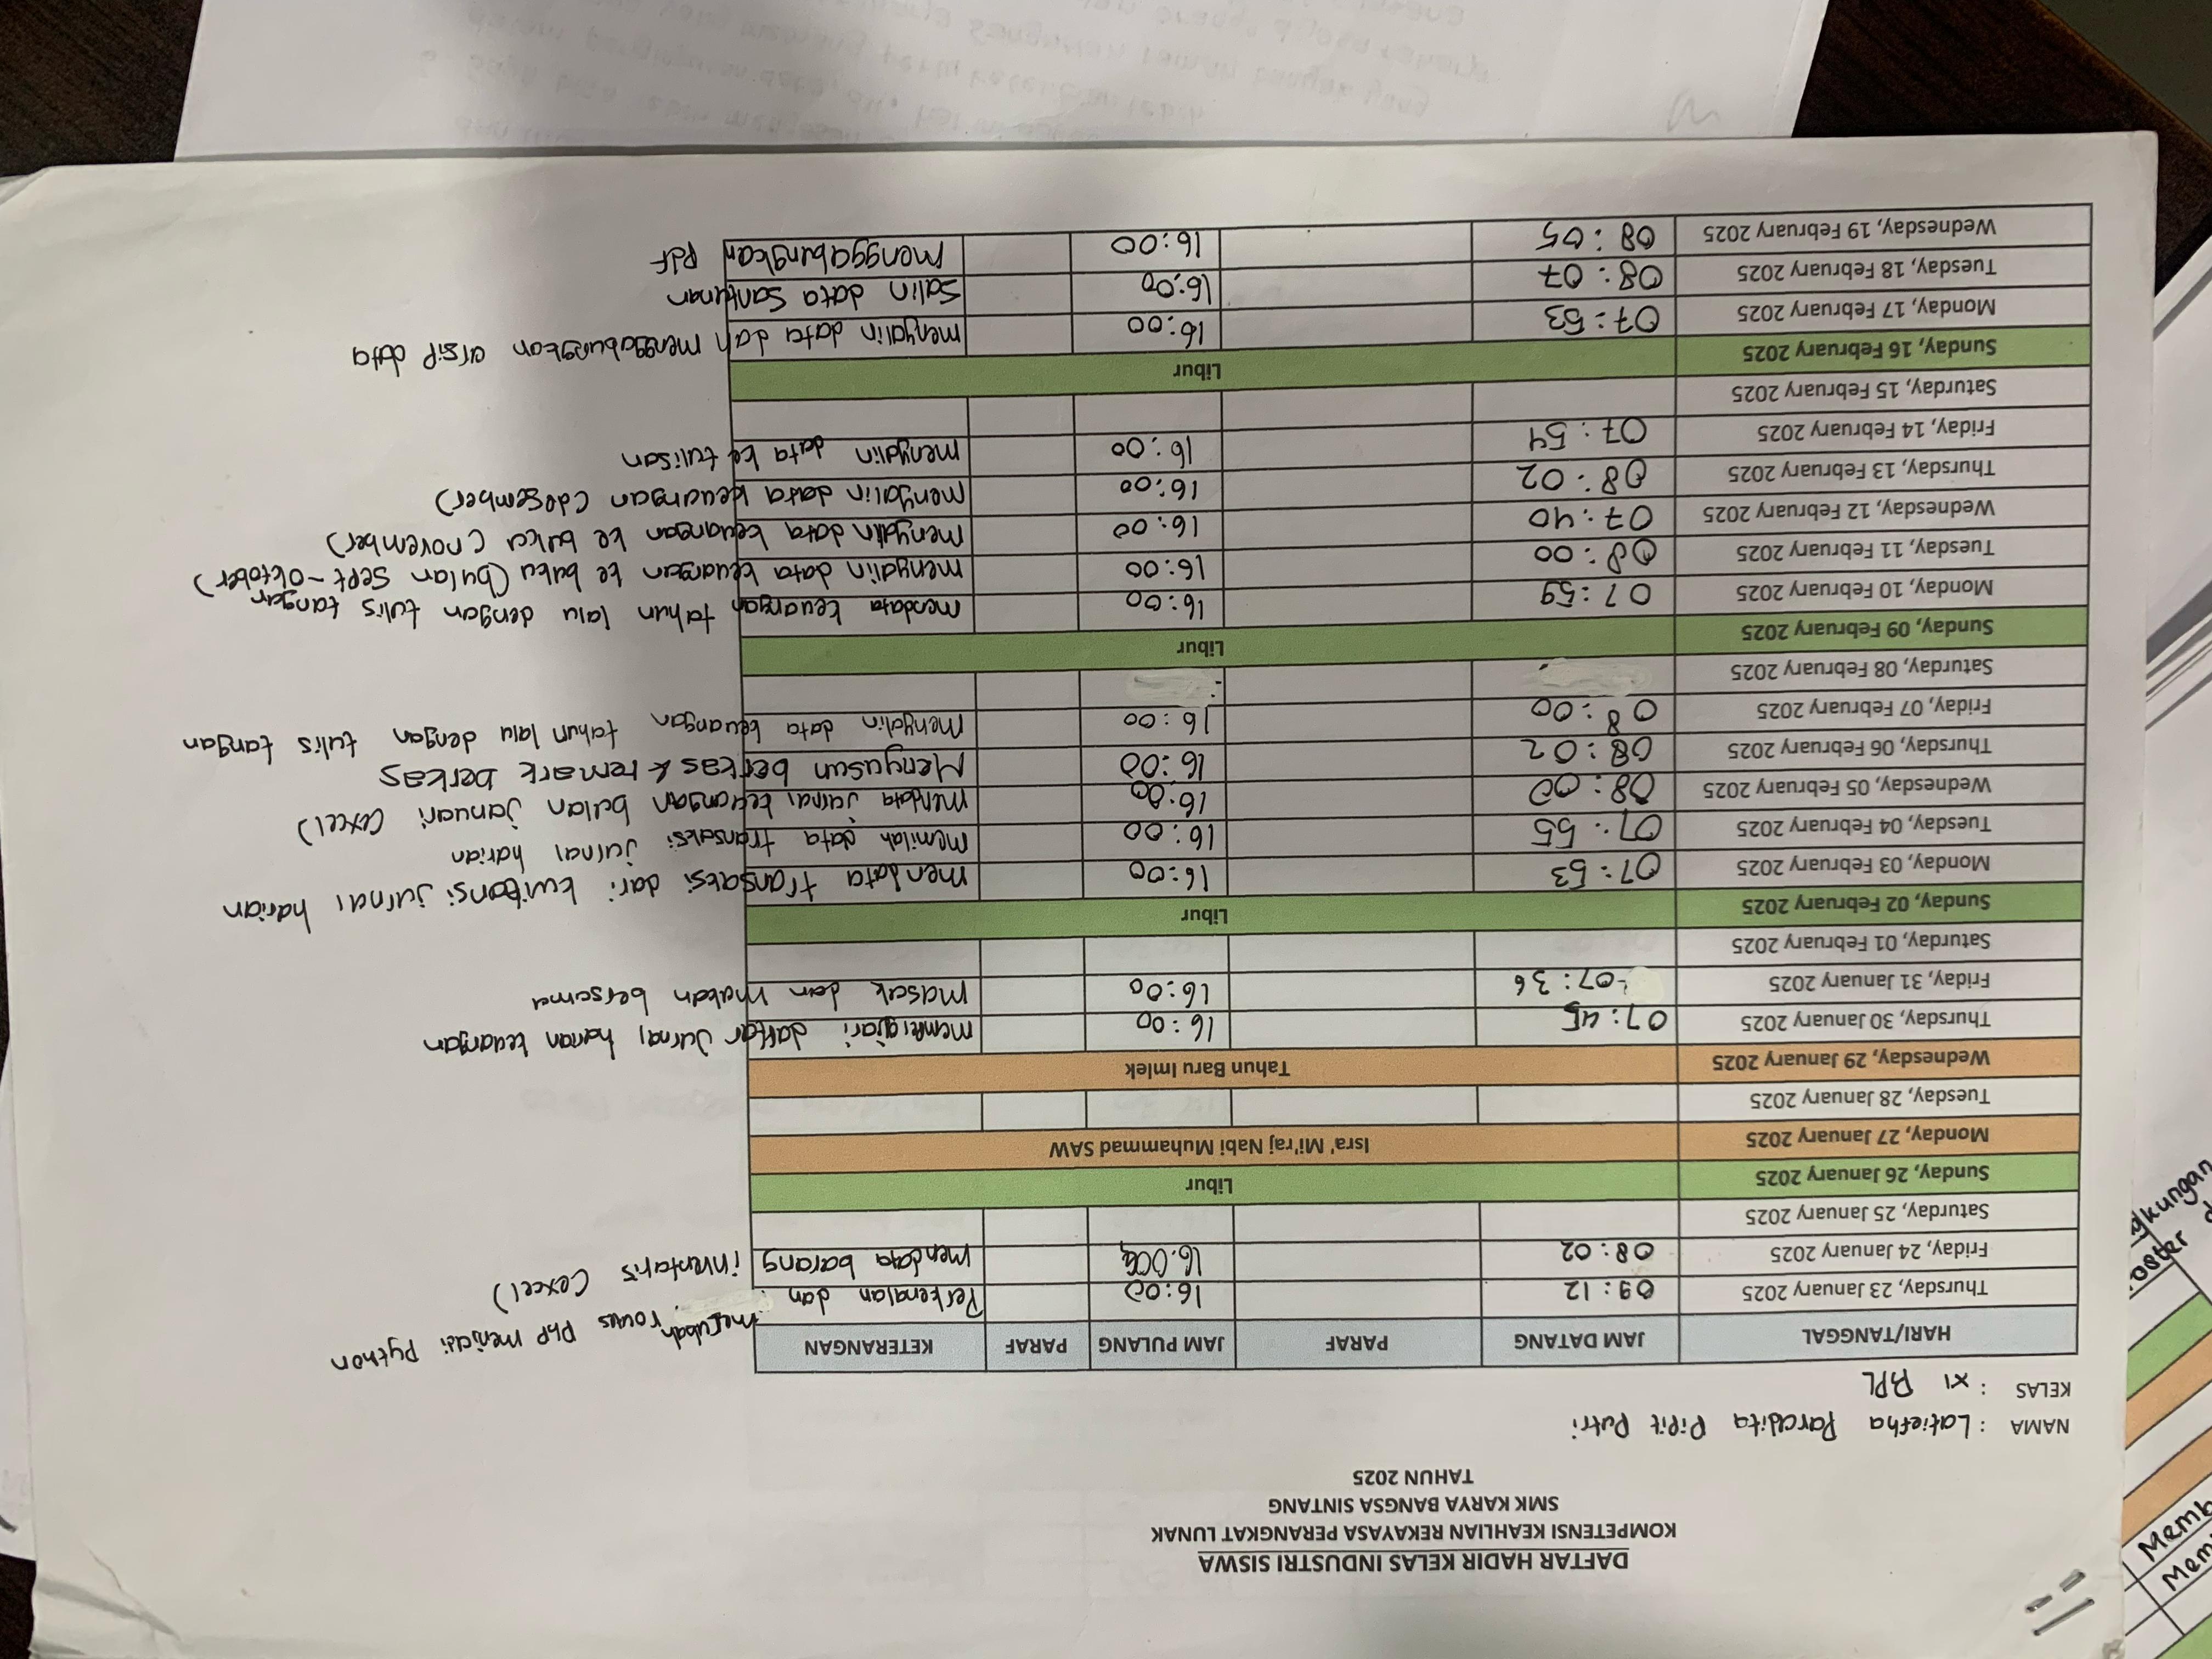 DAFTAR HADIR KELAS INDUSTRI SISWA
KOMPETENSI KEAHLIAN REKAYASA PERANGKAT LUNAK
SMK KARYA BANGSA SINTANG
TAHUN 2025
NAMA : Latiefha Paradita Pipit Putri
KELAS : XI RPL
HARI/TANGGAL JAM DATANG PARAF JAM PULANG PARAF KETERANGAN
Thursday, 23 January 2025 09:12 16:00 Perkenalan dan merubah rows PHP menjadi Python
Friday, 24 January 2025 08:02 16.00 mendata barang inventaris (excel)
Saturday, 25 January 2025
Sunday, 26 January 2025 Libur
Monday, 27 January 2025 Isra' Mi'raj Nabi Muhammad SAW
Tuesday, 28 January 2025
Wednesday, 29 January 2025 Tahun Baru Imlek
Thursday, 30 January 2025 07:45 16:00 mempelajari daftar Jurnal harian keuangan
Friday, 31 January 2025 07:36 16:00 masak dan makan bersama
Saturday, 01 February 2025
Sunday, 02 February 2025 Libur
Monday, 03 February 2025 07:53 16:00 mendata transaksi dari kwitansi jurnal harian
Tuesday, 04 February 2025 07:55 16:00 memilah data transaksi jurnal harian
Wednesday, 05 February 2025 08:00 16:00 mendata jurnal keuangan bulan januari (excel)
Thursday, 06 February 2025 08:02 16:00 Menyusun berkas & remark berkas
Friday, 07 February 2025 08:00 16:00 Menyalin data keuangan tahun lalu dengan tulis tangan
Saturday, 08 February 2025
Sunday, 09 February 2025 Libur
Monday, 10 February 2025 07:59 16:00 mendata keuangan tahun lalu dengan tulis tangan
Tuesday, 11 February 2025 08:00 16:00 menyalin data keuangan ke buku (bulan Sept-Oktober)
Wednesday, 12 February 2025 07:40 16:00 menyalin data keuangan ke buku (november)
Thursday, 13 February 2025 08:02 16:00 menyalin data keuangan (desember)
Friday, 14 February 2025 07:54 16:00 menyalin data ke tulisan
Saturday, 15 February 2025
Sunday, 16 February 2025 Libur
Monday, 17 February 2025 07:53 16:00 menyalin data dan menggabungkan arsip data
Tuesday, 18 February 2025 08:07 16:00 Salin data Santunan
Wednesday, 19 February 2025 08:05 16:00 menggabungkan pdf